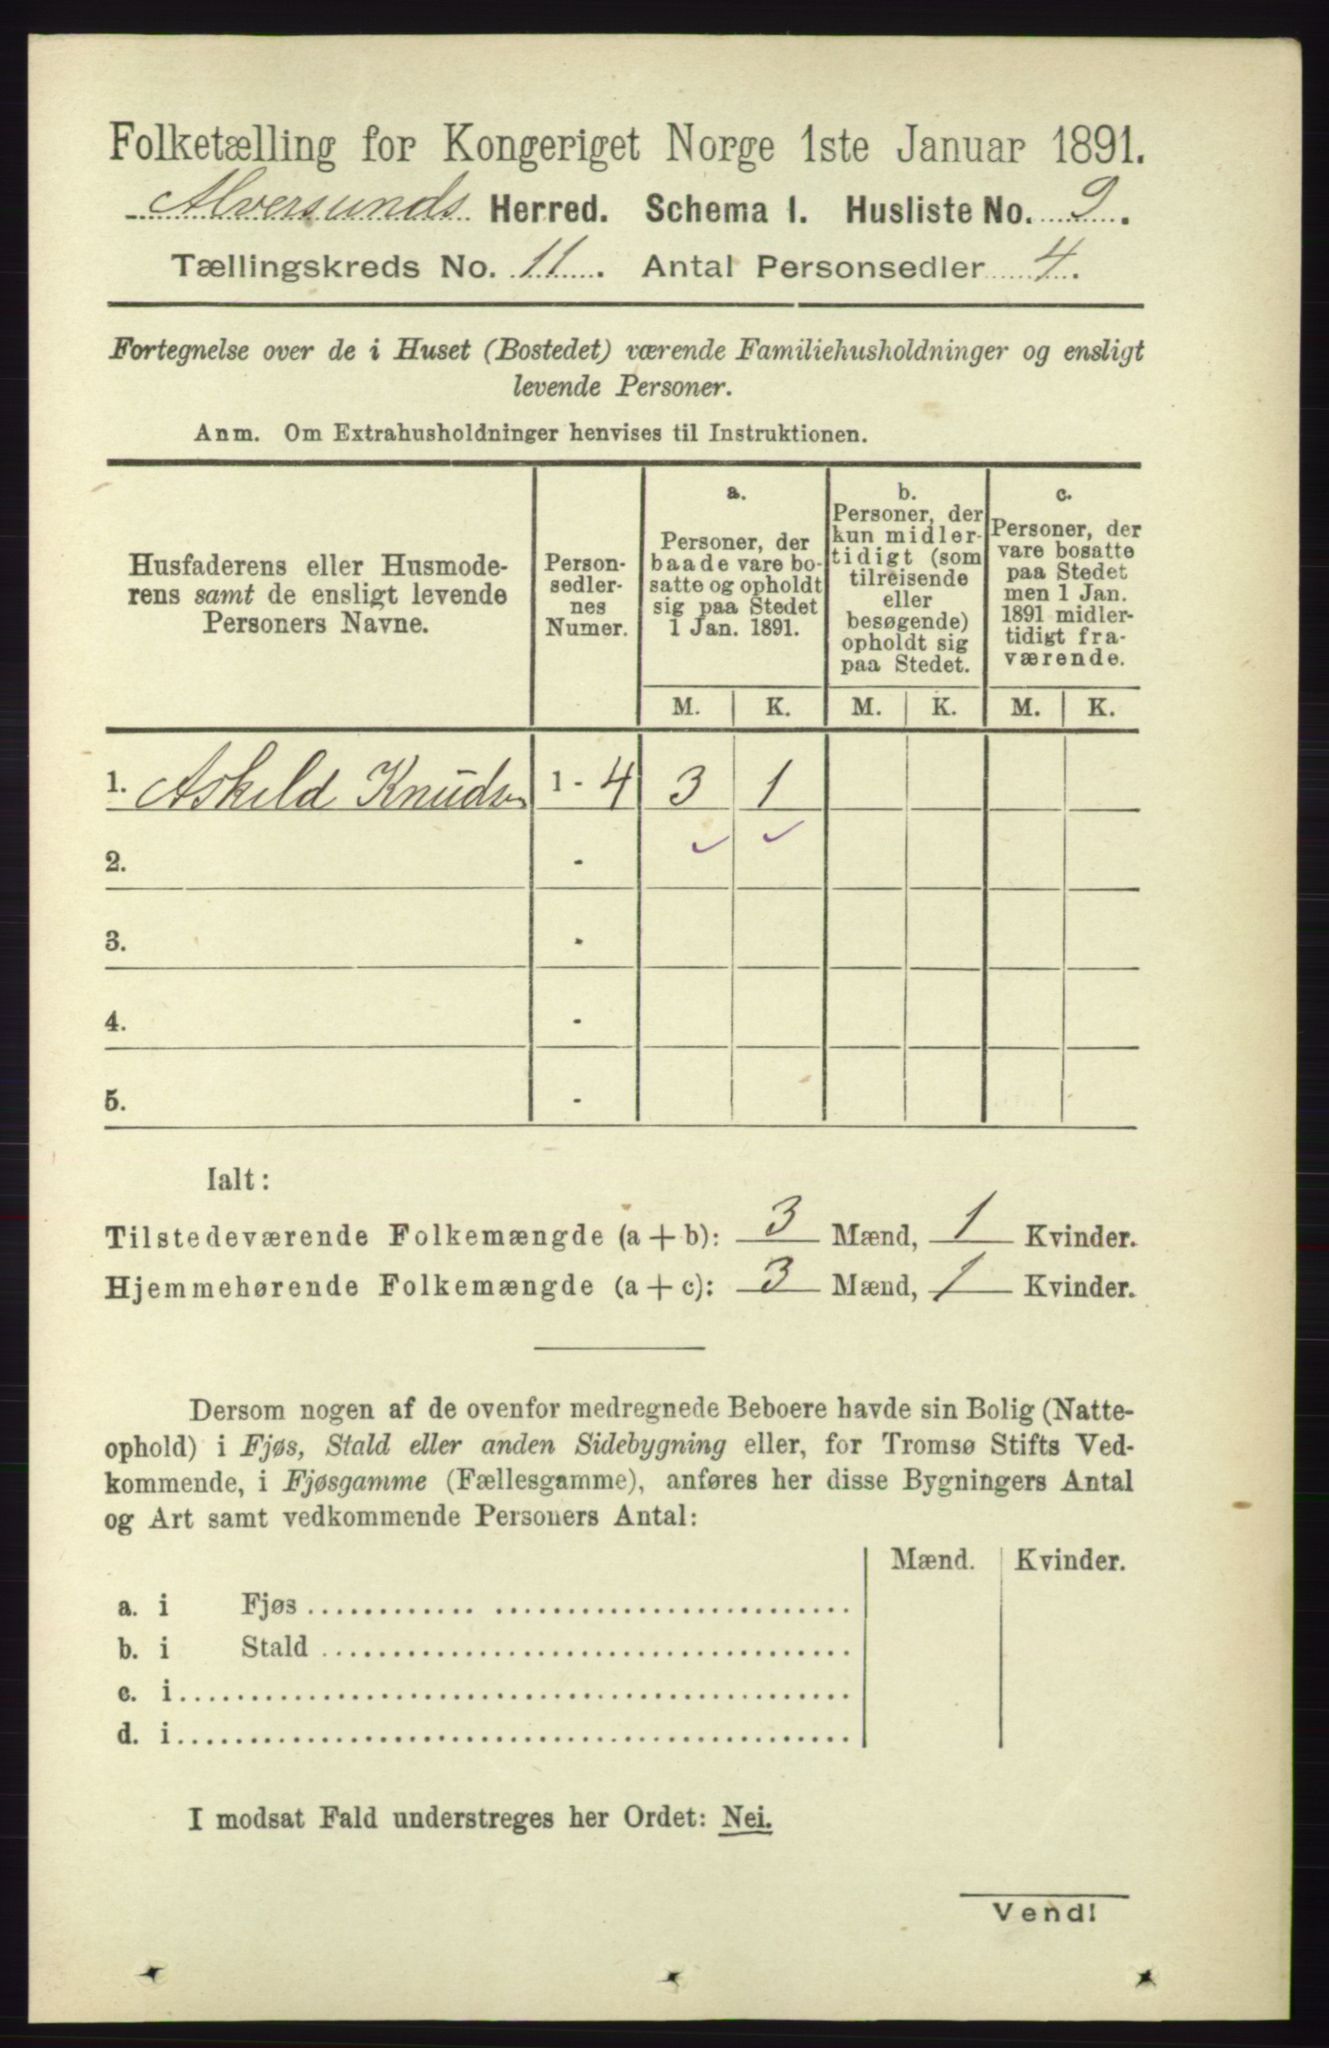 Folketælling for Kongeriget Norge 1ste Januar 1891.
Alversunds Herred. Schema 1. Husliste No. 9.
Tællingskreds No. 11. Antal Personsedler 4.
Fortegnelse over de i Huset (Bostedet) værende Familiehusholdninger og ensligt
levende Personer.
Anm. Om Extrahusholdninger henvises til Instruktionen.
Husfaderens eller Husmode-
rens samt de ensligt levende
Personers Navne.
Person-
sedler-
nes
Numer.
a.
Personer, der
baade vare bo-
satte og opholdt
sig paa Stedet
1 Jan. 1891.
b.
Personer, der
kun midler-
tidigt (som
tilreisende
eller
besøgende)
opholdt sig
paa Stedet.
c.
Personer, der
vare bosatte
paa Stedet
men 1 Jan.
1891 midler-
tidigt fra-
værende.
M. K. M. K. M. K.
1. Askeld Knudsen 1 - 4 3 1
2. -
3. -
4. -
5. -
Ialt:
Tilstedeværende Folkemængde (a + b): 3 Mænd, 1 Kvinder.
Hjemmehørende Folkemængde (a + c): 3 Mænd, 1 Kvinder.
Dersom nogen af de ovenfor medregnede Beboere havde sin Bolig (Natte-
ophold) i Fjøs, Stald eller anden Sidebygning eller, for Tromsø Stifts Ved-
kommende, i Fjøsgamme (Fællesgamme), anføres her disse Bygningers Antal
og Art samt vedkommende Personers Antal:
Mænd. Kvinder.
a. i Fjøs
b. i Stald
c. i
d. i
I modsat Fald understreges her Ordet: Nei.
Vend!